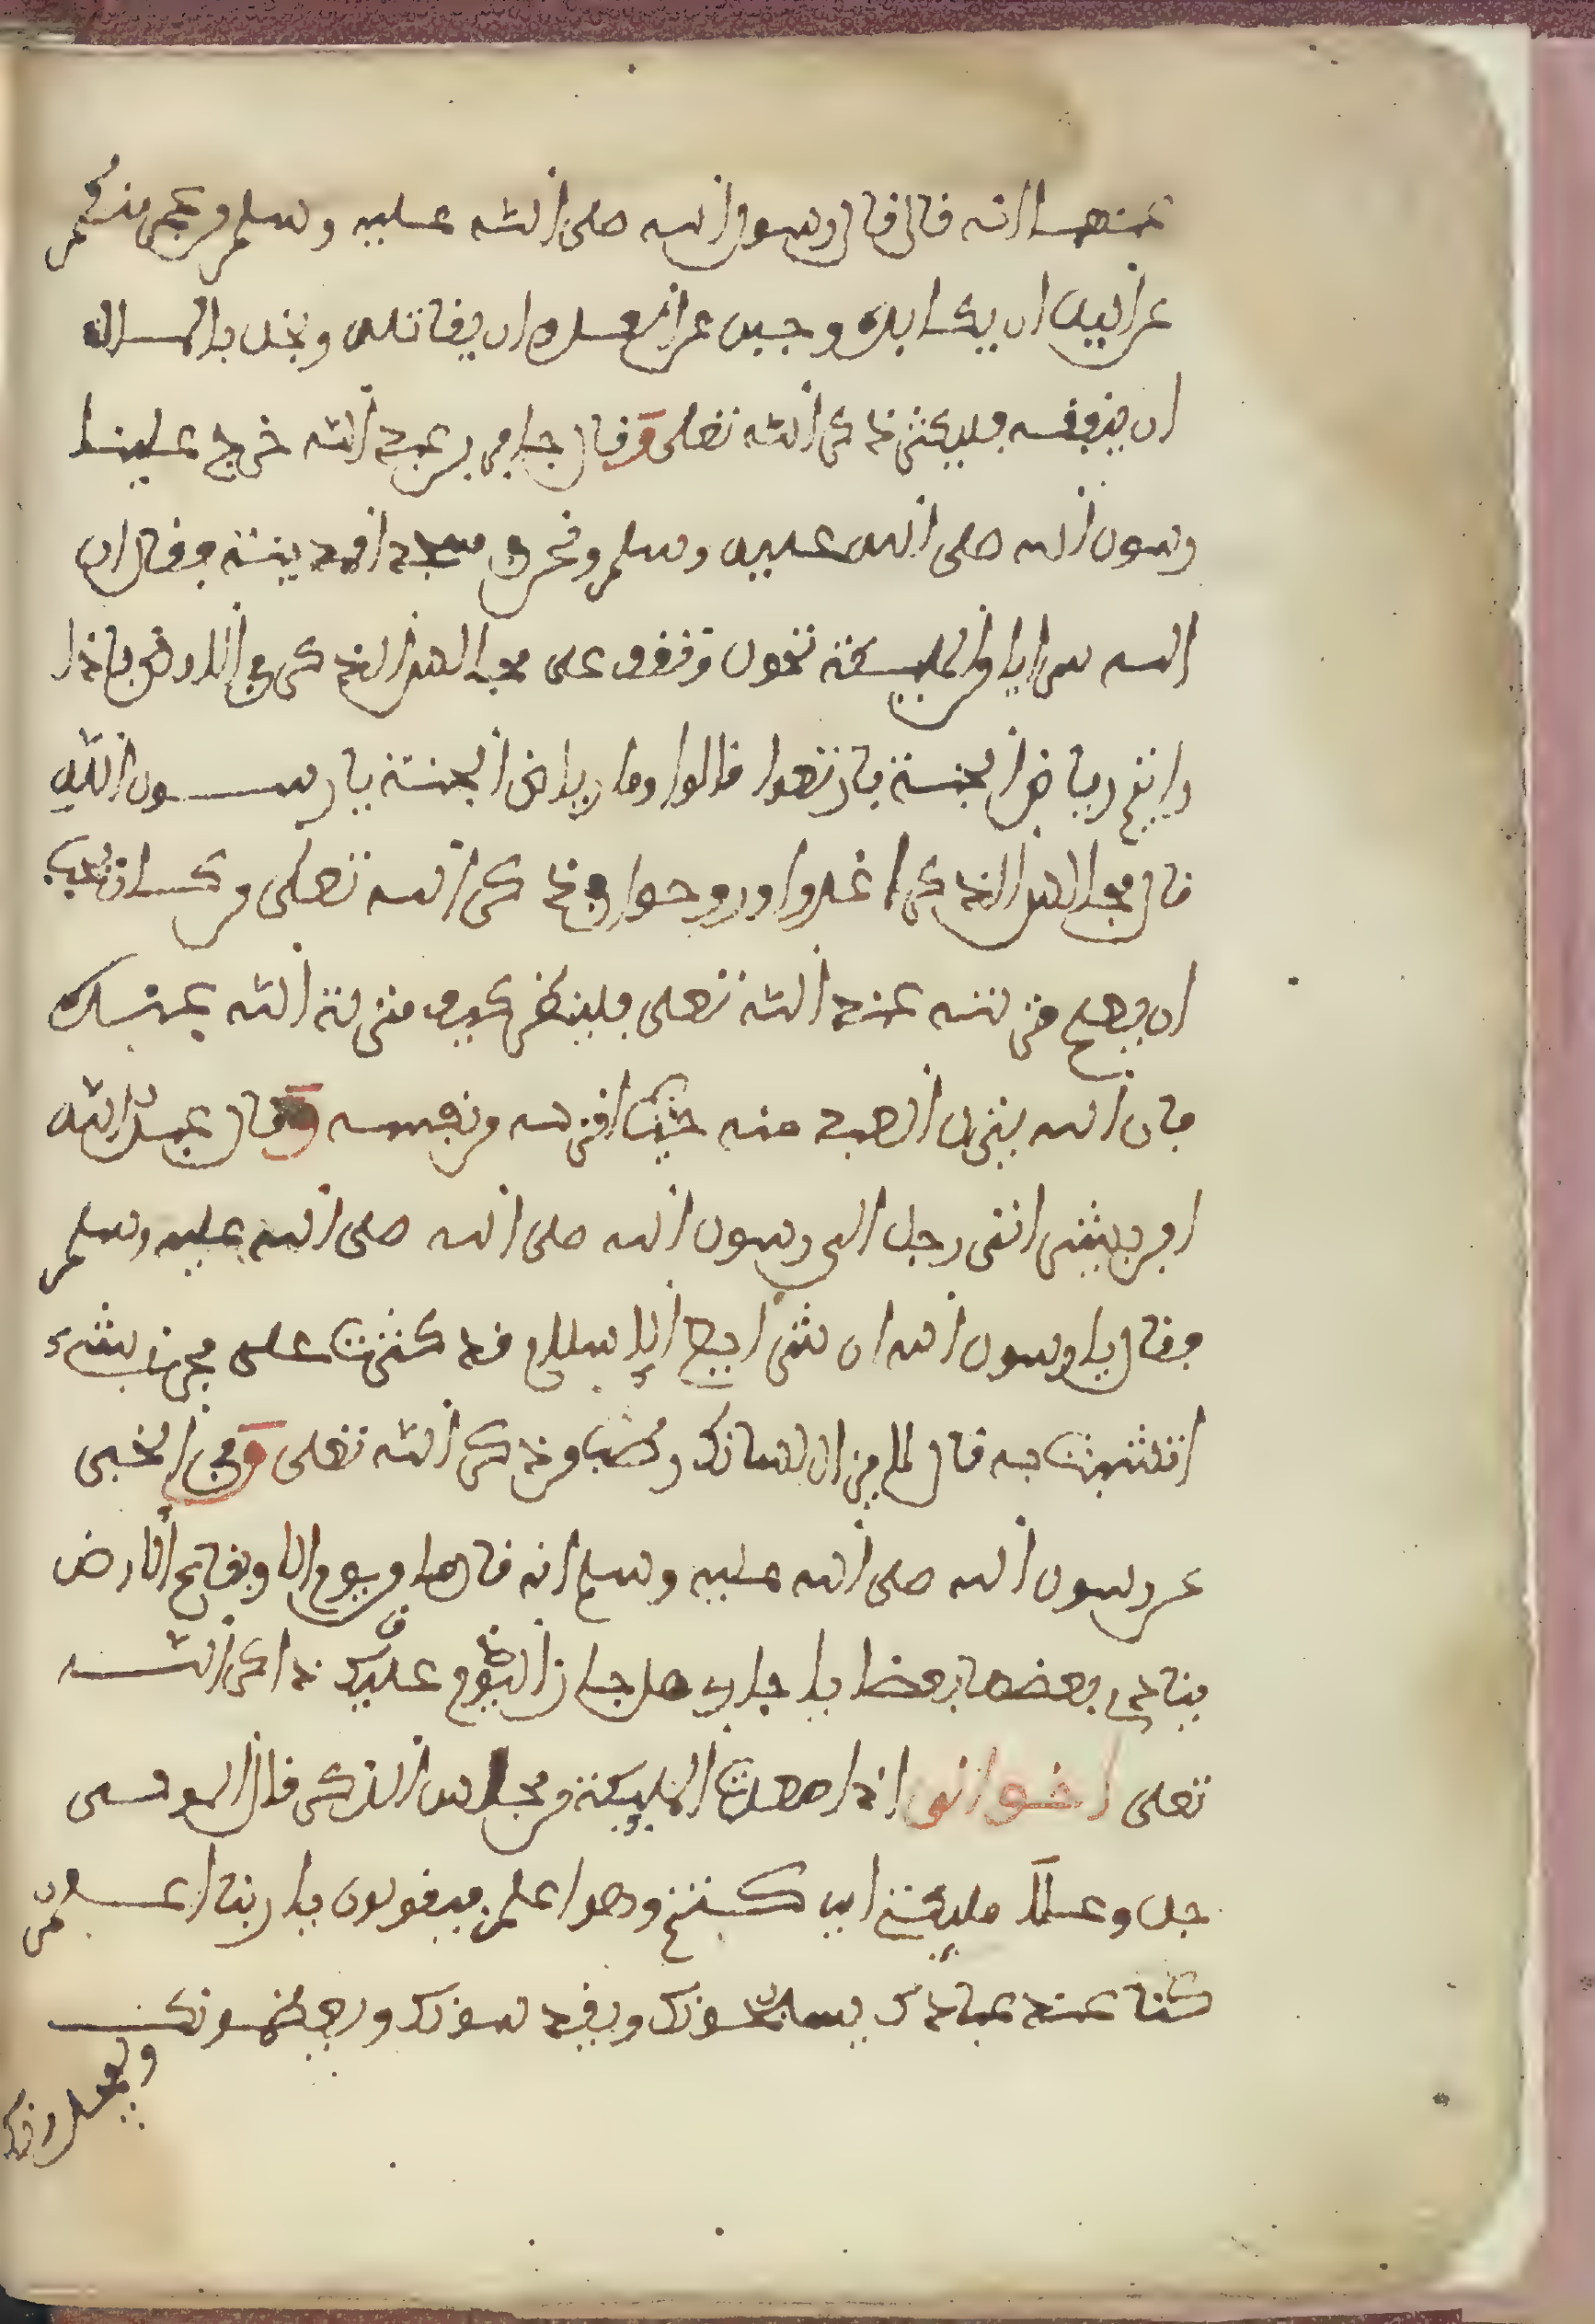 عنهما انه قال قال رسول الله صلى الله عليه وسلم من عجز منكم
عن اليل ان يكابده وجبن عن العدو ان يقاتله وبخل بالمال
ان ينفقه فليكثر ذكر الله تعلى وقال جابر بن عبد الله خرج علينا
رسول الله صلى الله عليه وسلم ونحن في مسجد المدينة فقال ان
لله سرايا من المليكة تحول وتقف على مجالس الذكر في الارض فاذا
رايتم رياض الجنة فارتعوا قالوا وما رياض الجنة يا رسول الله
قال مجالس الذكر اغدوا وروحوا في ذكر الله تعلى من كان يحب
ان يعلم منزلته عند الله تعلى فلينظر كيف منزلة الله عنده
فان الله ينزل العبد منه حيث انزله من نفسه وقال عبد الله
ابن بشر اتى رجل الى رسول الله صلى الله صلى الله عليه وسلم
فقال يا رسول الله ان شرايع الاسلام قد كثرت على فمرني بشيء
اتشبث به قال لا يزال لسانك رطب من ذكر الله تعلى وفي الخبر
عن رسول الله صلى الله عليه وسلم انه قال ما من يوم الا وبقاع الارض
ينادي بعضها بعضا يا جاري هل جاز اليوم عليك ذاكر الله
تعلى اخواني اذا صعدت المليكة من مجالس الذكر قال المولى
جل وعلا مليكتي اين كنتم وهو اعلم فيقولون يا ربنا اعلم
كنا عند عبادك يسبحونك ويقدسونك ويعظمونك
ويهللونك